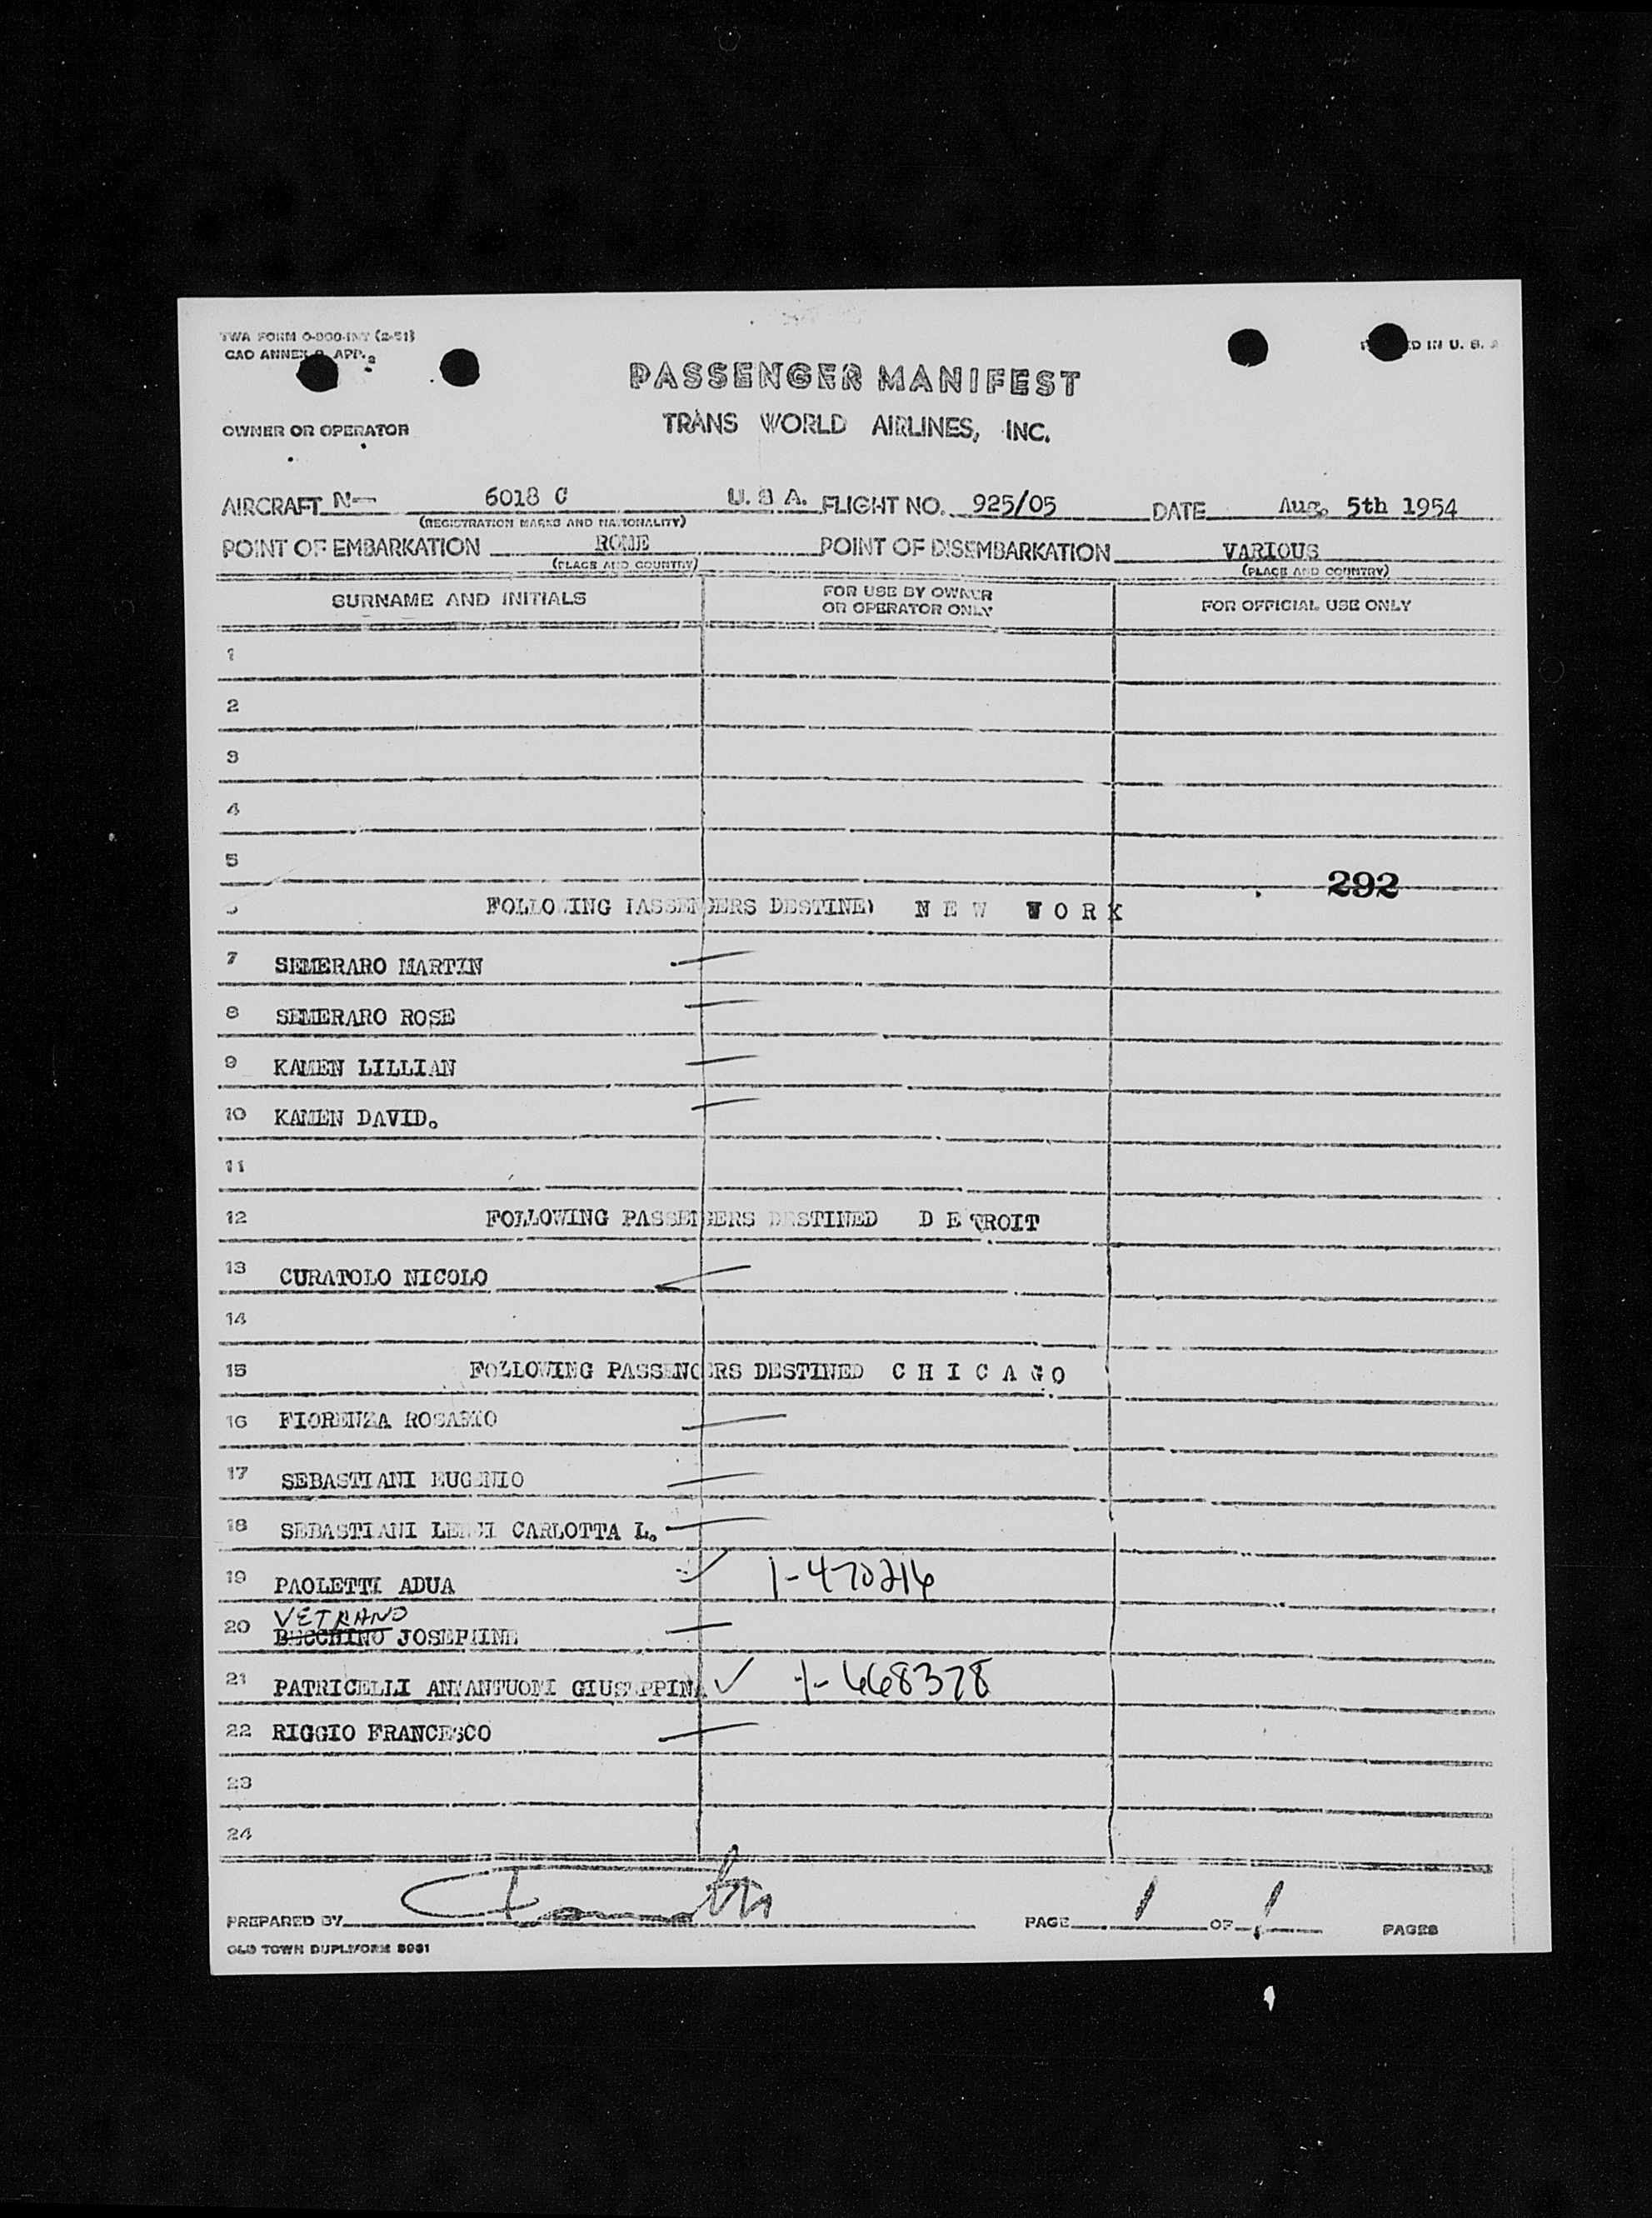 TWA FORM O-900-INT (2-51)
CAO ANNEX 9, APP. 2
D IN U. S. A
PASSENGER MANIFEST
OWNER OR OPERATOR
TRANS WORLD AIRLINES, INC.
AIRCRAFT N- 6018 C U. S A. FLIGHT NO. 925/05 DATE Aug. 5th 1954
(REGISTRATION MARKS AND NATIONALITY)
POINT OF EMBARKATION ROME POINT OF DISEMBARKATION VARIOUS
(PLACE AND COUNTRY) (PLACE AND COUNTRY)
SURNAME AND INITIALS FOR USE BY OWNER OR OPERATOR ONLY FOR OFFICIAL USE ONLY
1
2
3
4
5
292
6 FOLLOWING PASSENGERS DESTINED N E W Y O R K
7 SEMERARO MARTIN
8 SEMERARO ROSE
9 KAMEN LILLIAN
10 KAMEN DAVID.
11
12 FOLLOWING PASSENGERS DESTINED D E TROIT
13 CURATOLO NICOLO
14
15 FOLLOWING PASSENGERS DESTINED C H I C A G O
16 FIORENZA ROSARIO
17 SEBASTIANI EUGENIO
18 SEBASTIANI CARLOTTA L.
19 PAOLETTI ADUA ✓ 1-470216
VETRANO
20 BECCHINO JOSEPHINE
21 PATRICELLI ANTANTUONI GIUSEPPINA ✓ 1-668378
22 RIGGIO FRANCESCO
23
24
PREPARED BY PAGE 1 OF 1 PAGES
OLD TOWN DUPLIFORM 8981